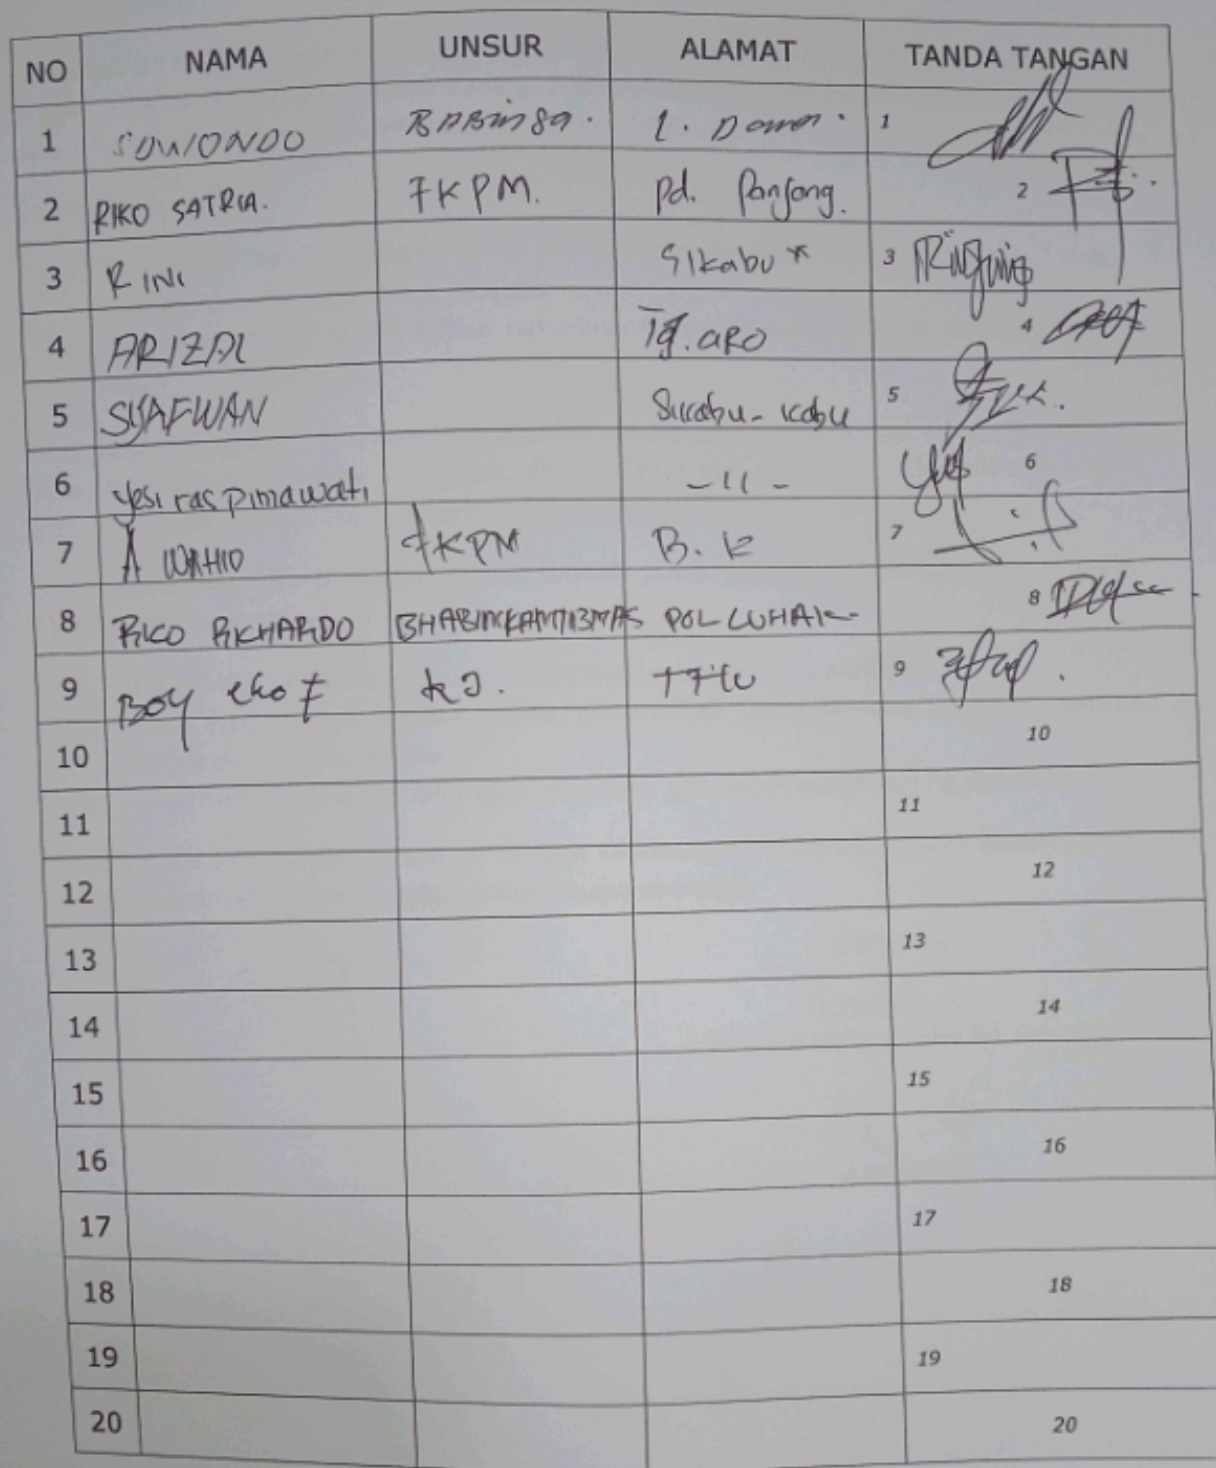 NO NAMA UNSUR ALAMAT TANDA TANGAN
1 SUWONDO BABinsa. L. Damar. 1
2 RIKO SATRIA. FKPM. Pd. Panjang. 2
3 RINI Sikabu * 3
4 ARIZAL Tg. ARO 4
5 SYAFWAN Sikabu-kabu 5
6 yesi raspimawati -11- 6
7 A WAHID FKPM B. K 7
8 RICO RICHARDO BHABINKAMTIBMAS POL LUHAK 8
9 BOY eko F KJ. 9
10 10
11 11
12 12
13 13
14 14
15 15
16 16
17 17
18 18
19 19
20 20